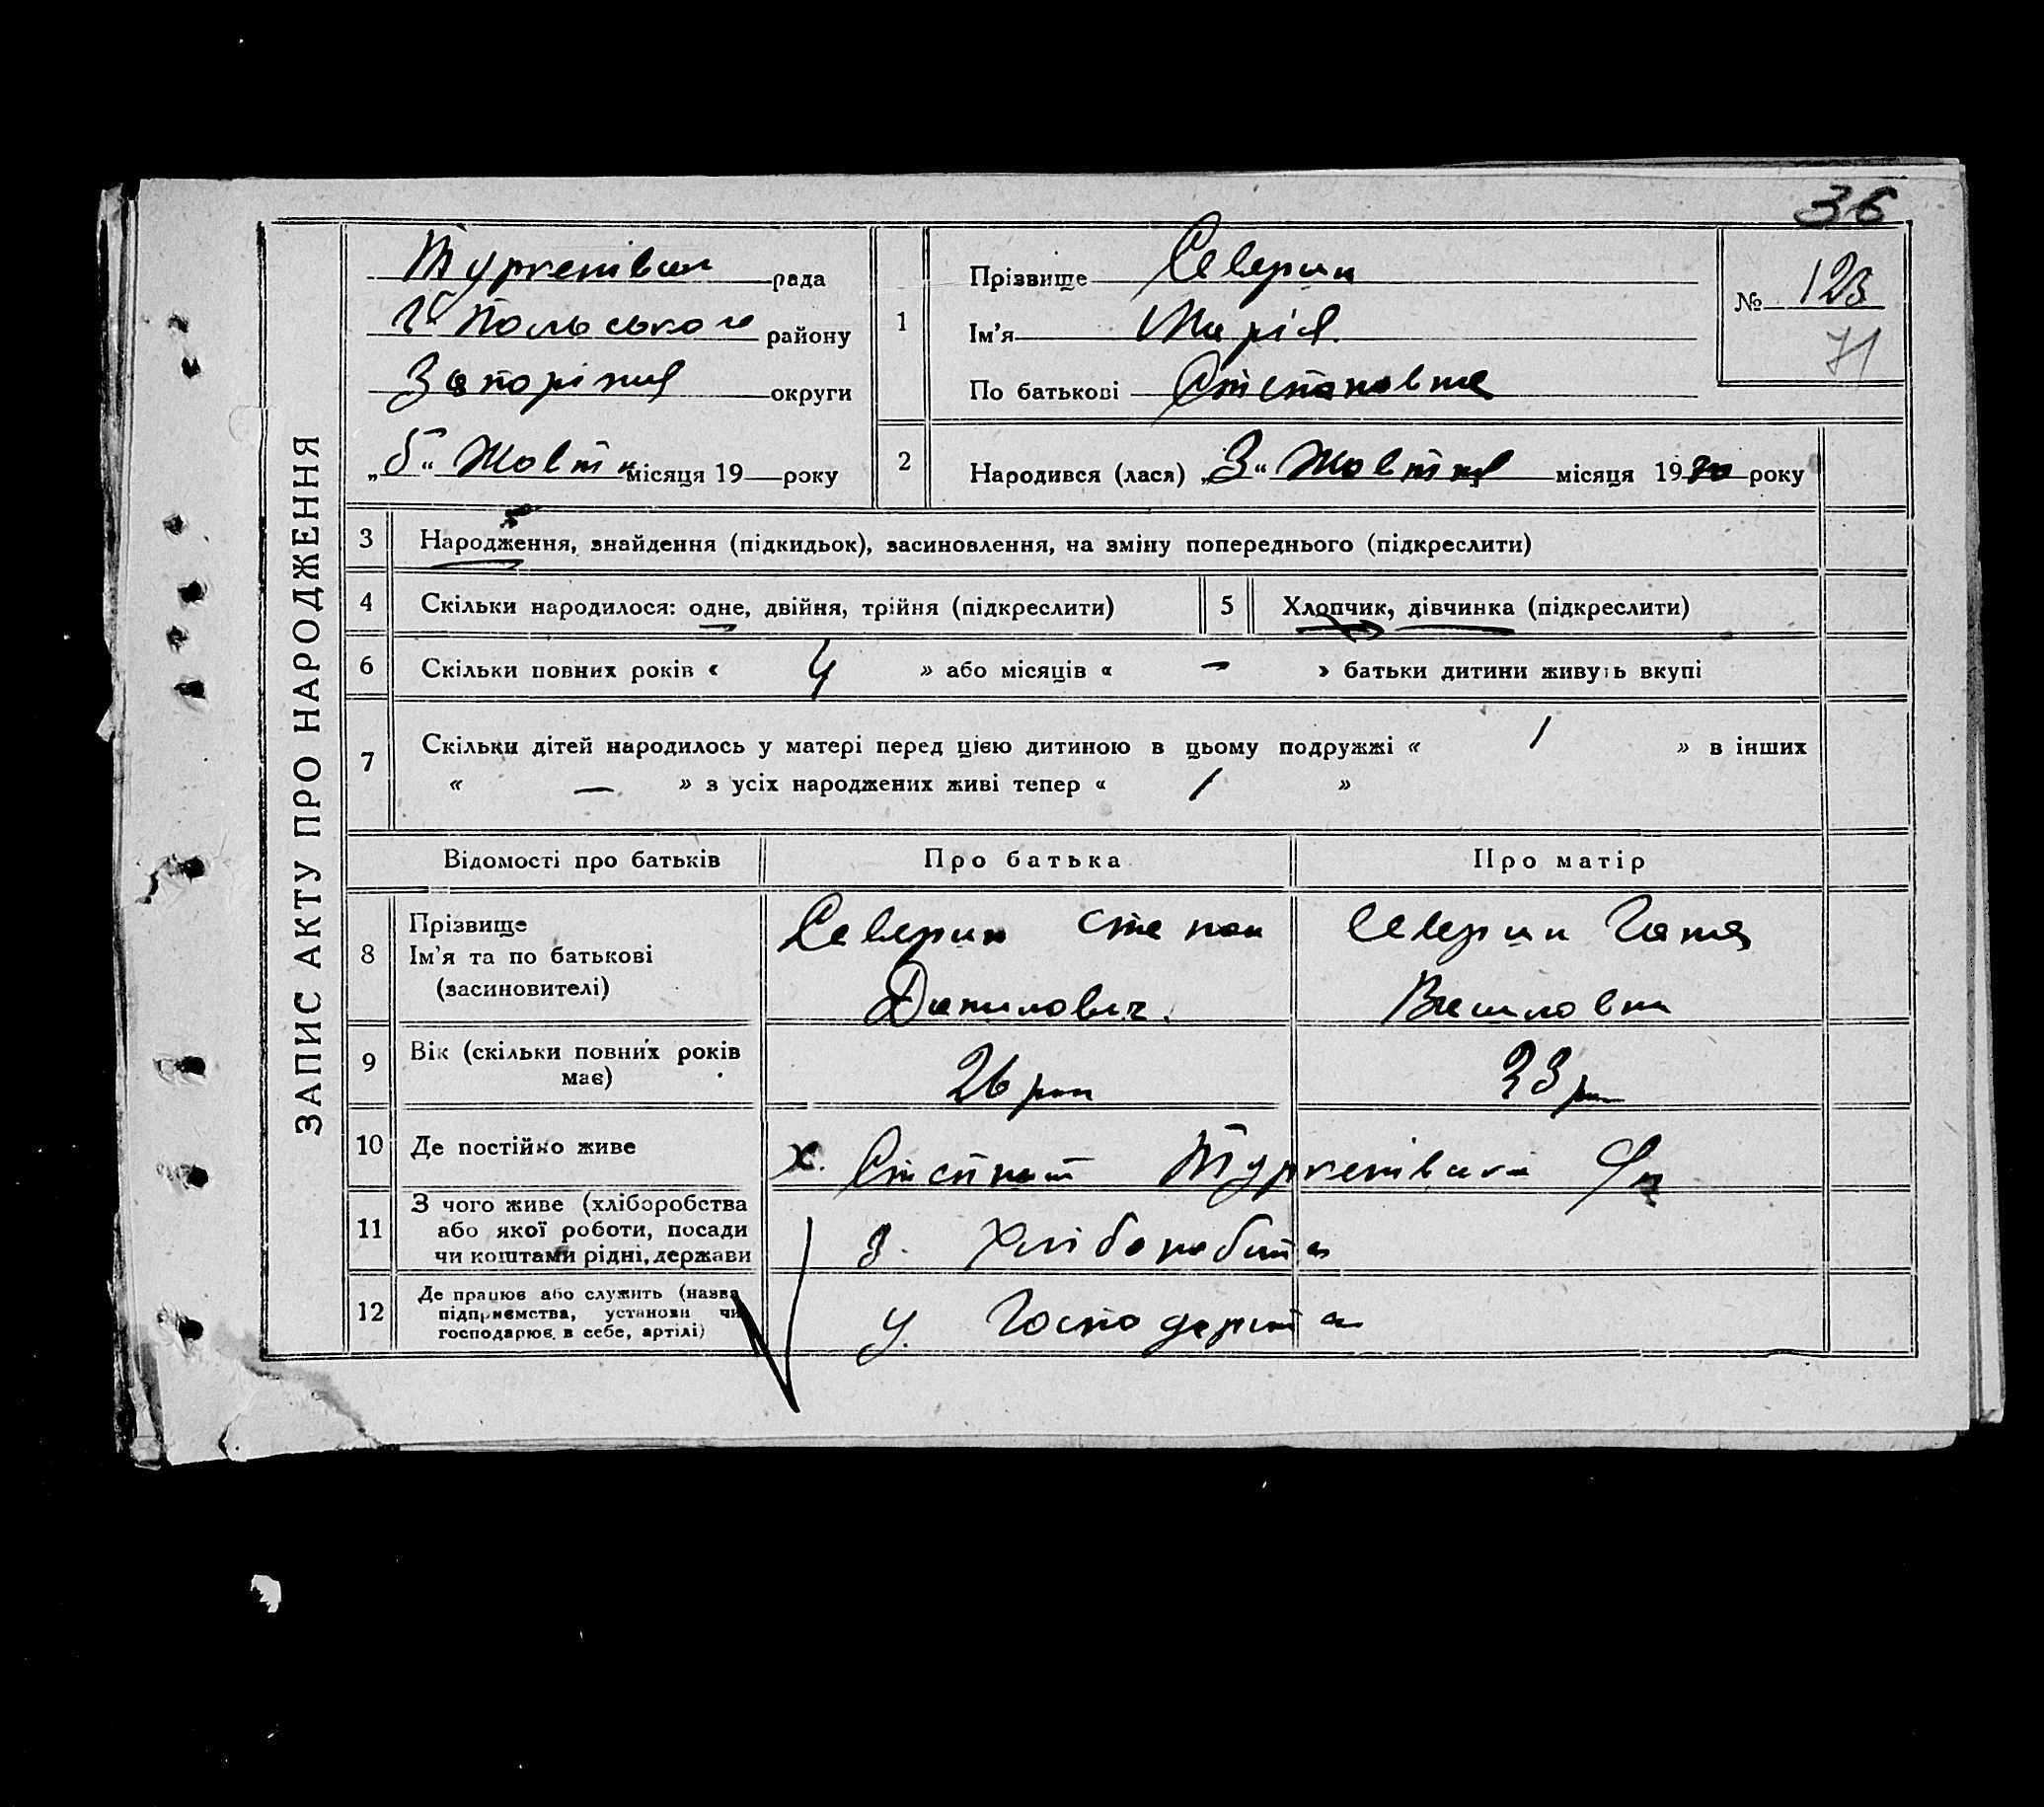 36
ЗАПИС АКТУ ПРО НАРОДЖЕННЯ
рада
району
округи
„5“ Жовтн місяця 19 року
1
Прізвище Северин
Ім’я Марія
По батькові Степановна
№ 123
71
2
Народився (лася) „3“ Жовтня місяця 1930 року
3 Народження, знайдення (підкидьок), засиновлення, на зміну попереднього (підкреслити)
4 Скільки народилося: одне, двійня, трійня (підкреслити)
5 Хлопчик, дівчинка (підкреслити)
6 Скільки повних років « 4 » або місяців « — » батьки дитини живуть вкупі
7 Скільки дітей народилось у матері перед цією дитиною в цьому подружжі « 1 » в інших
« — » з усіх народжених живі тепер « 1 »
Відомості про батьків Про батька Про матір
8 Прізвище
Ім’я та по батькові
(засиновителі)
Северин Степан
Данилович.
Северин Ганна
Василовна
9 Вік (скільки повних років
має)
26 рок
33 р
10 Де постійно живе
х.
11 З чого живе (хліборобства
або якої роботи, посади
чи коштами рідні, держави
З.
12 Де працює або служить (назва
підприємства, установи чи
господарює в себе, артілі)
У.